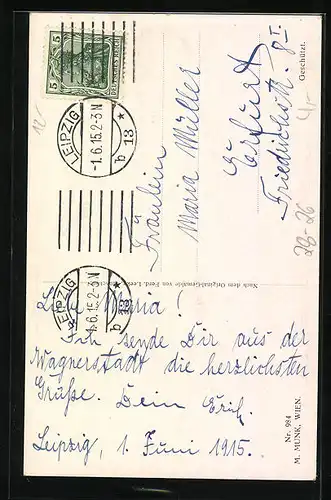 5
5
DEUTSCHES REICH
LEIPZIG
-1.6.15.2-3N
b 13 *
LEIPZIG
-1.6.15.2-3N
b 13 *
Fräulein
Maria Müller
Erfurt
Friedrichstr. 8 I.
Geschützt.
12.-
4,-
28-26
Nach dem Original-Gemälde von Ferd.
Liebe Maria!
Ich sende Dir aus der
Wagnerstadt die herzlichsten
Grüße. Dein Erich.
Leipzig, 1. Juni 1915.
Nr. 984
M. MUNK, WIEN.